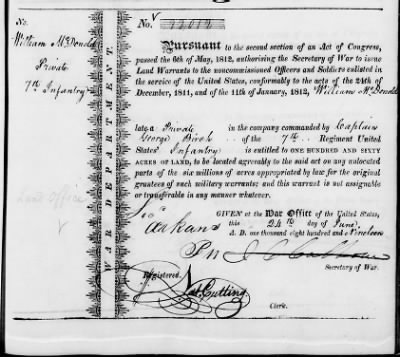 No.
William McDonold
Private
7th Infantry
Land Office
V
WAR DEPARTMENT.
No. 12012
Pursuant to the second section of an Act of Congress,
passed the 6th of May, 1812, authorising the Secretary of War to issue
Land Warrants to the noncommissioned Officers and Soldiers enlisted in
the service of the United States, conformably to the acts of the 24th of
December, 1811, and of the 11th of January, 1812, William McDonold
late a Private in the company commanded by Captain
George Birch of the 7th Regiment United
States' Infantry is entitled to ONE HUNDRED AND SIXTY
ACRES OF LAND, to be located agreeably to the said act on any unlocated
parts of the six millions of acres appropriated by law for the original
grantees of such military warrants; and this warrant is not assignable
or transferable in any manner whatever.
GIVEN at the War Office of the United States,
this 24th day of June
A. D. one thousand eight hundred and Nineteen
Arkans
J C Calhoun
Secretary of War.
Registered.
Nat. Cutting
Clerk.